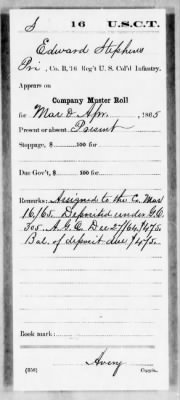 S 16 U.S.C.T.
Edward Stephens
Pri, Co. B, 16 Reg't U. S. Col'd Infantry.
Appears on
Company Muster Roll
for Mar & Apr, 1865
Present or absent Present
Stoppage, $ 100 for
Due Gov't, $ 100 for
Remarks: Assigned to the Co. Mar
16/65. Deposited under G.O.
305. A.G.O. Dec 27/64 $475.
Bal. of deposit due $475.
Book mark:
Avery
(358) Copyist.